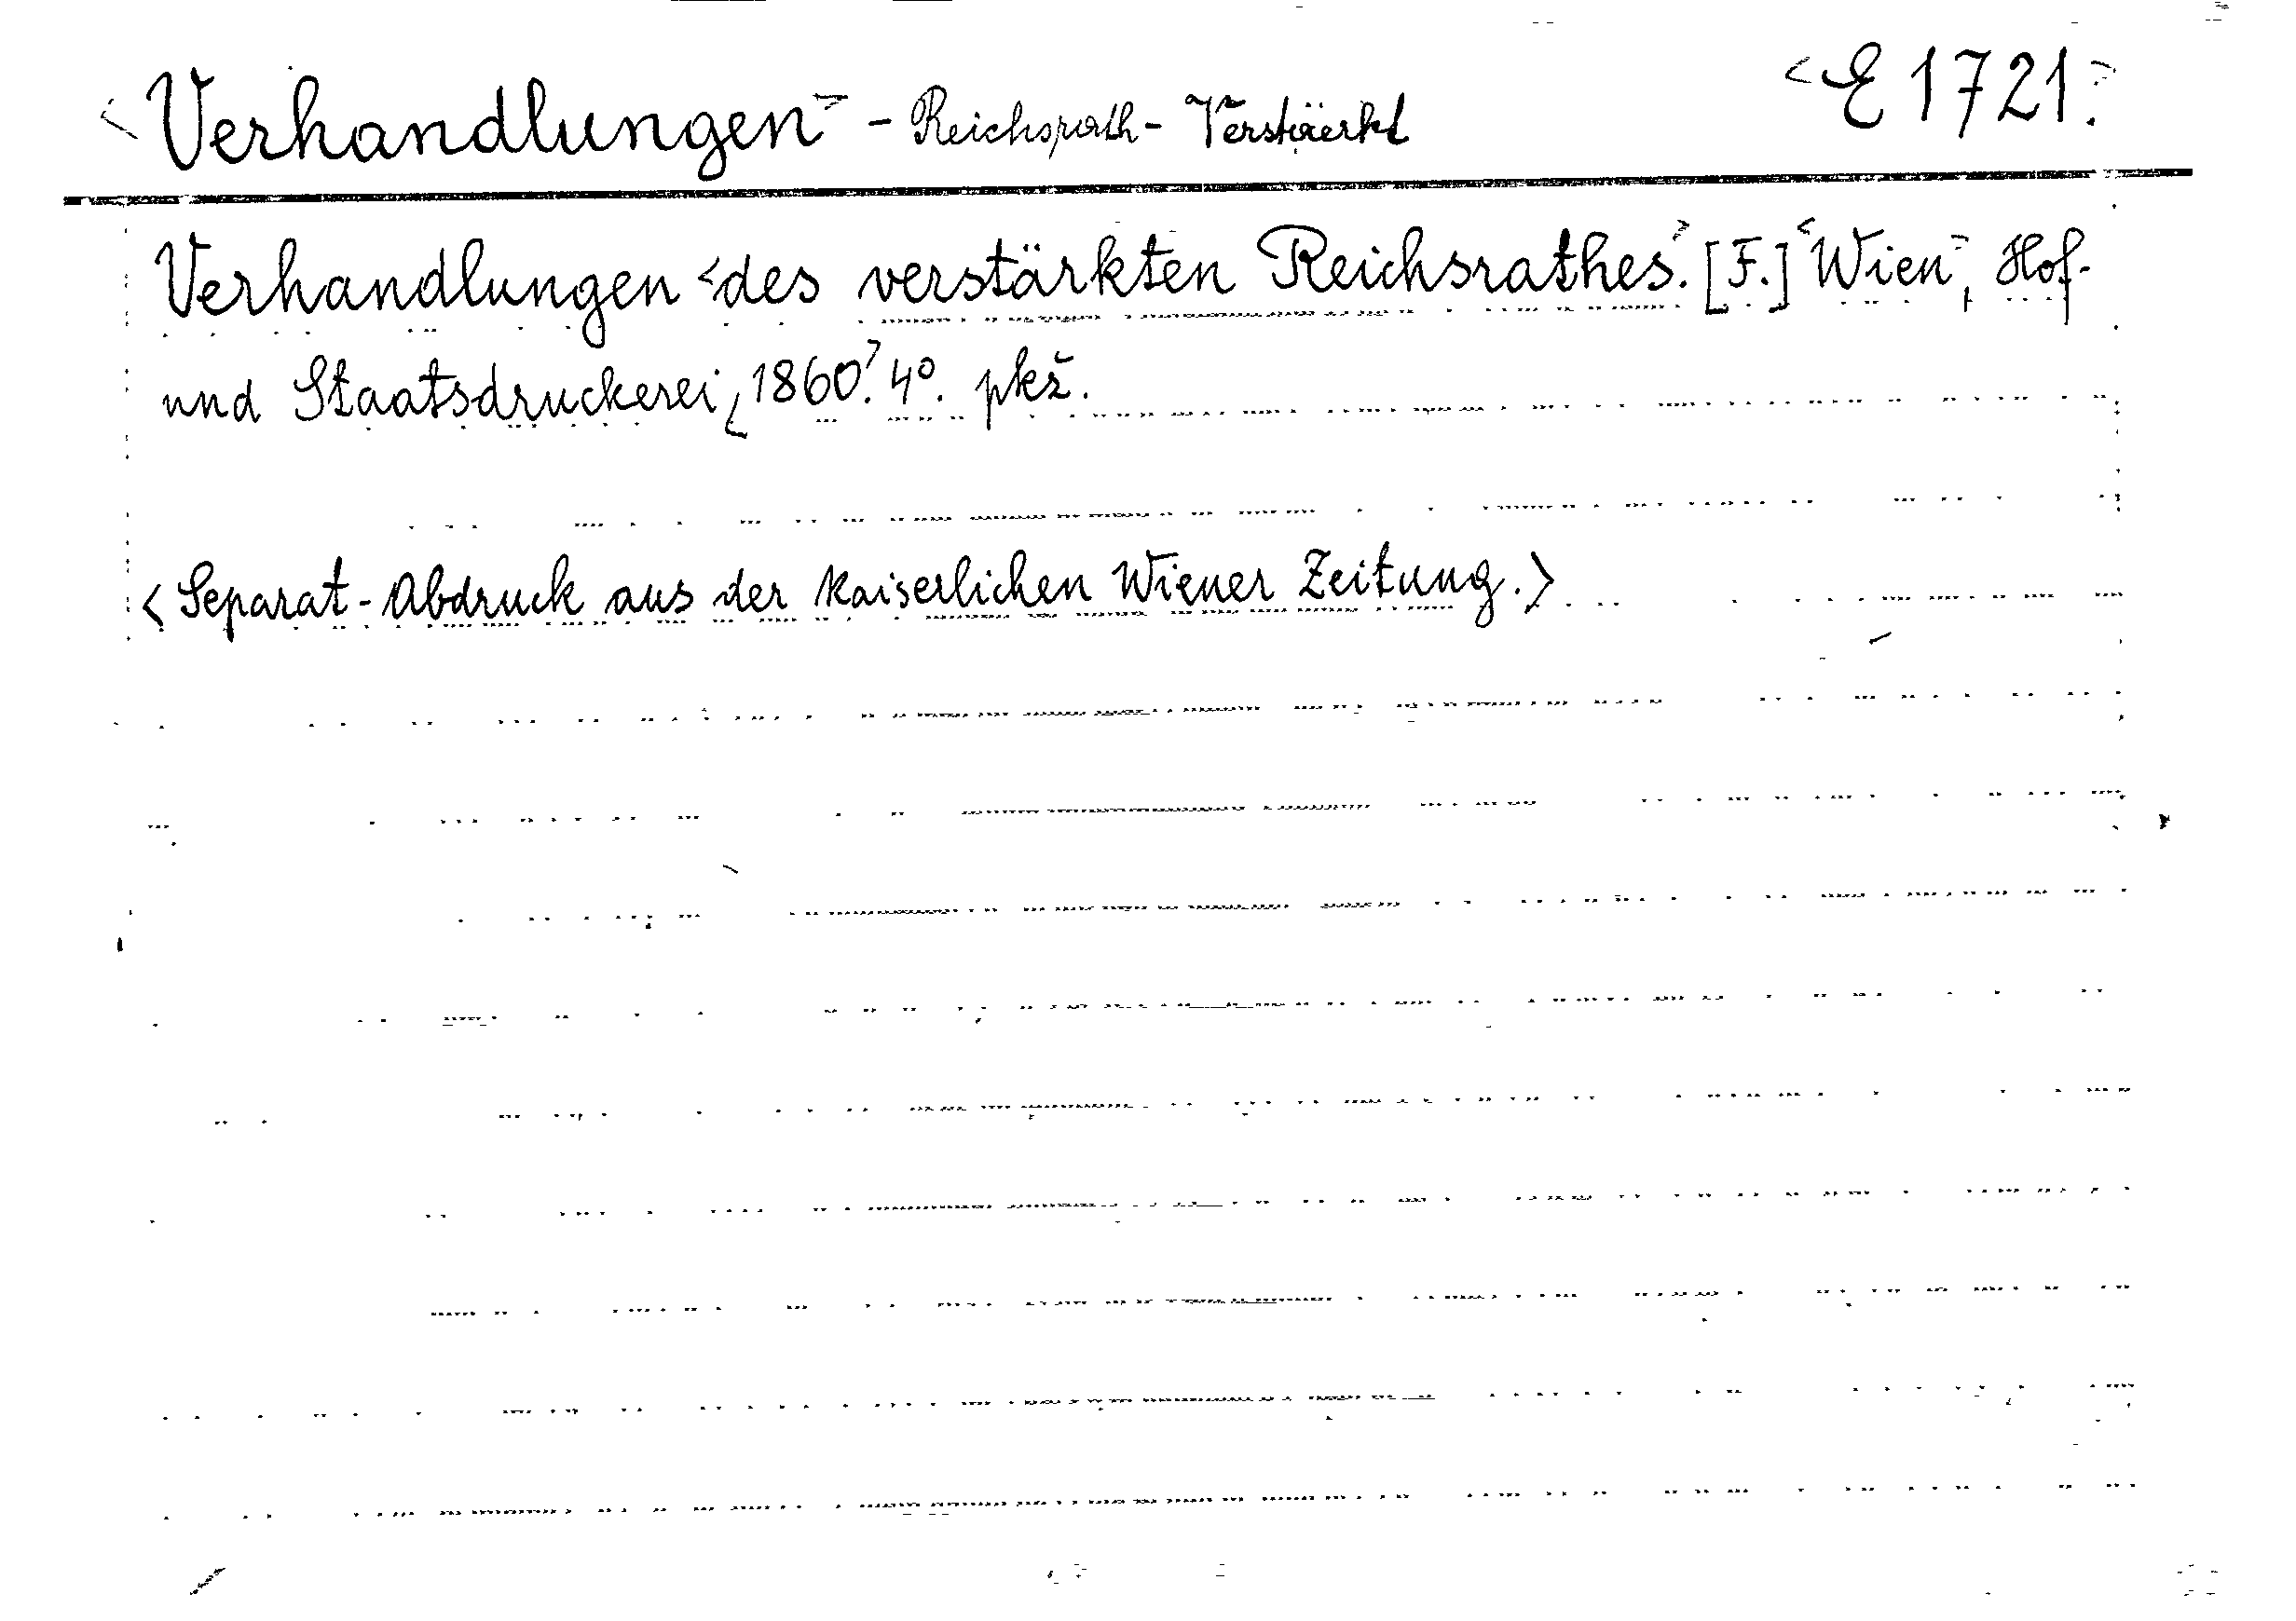 <Verhandlungen> - Reichsrath - Verstäerkt <E 1721.>
Verhandlungen <des verstärkten Reichsrathes.> [F.] <Wien>, Hof-
und Staatsdruckerei, <1860.> 4°. pkž.
<Separat-Abdruck aus der kaiserlichen Wiener Zeitung.>